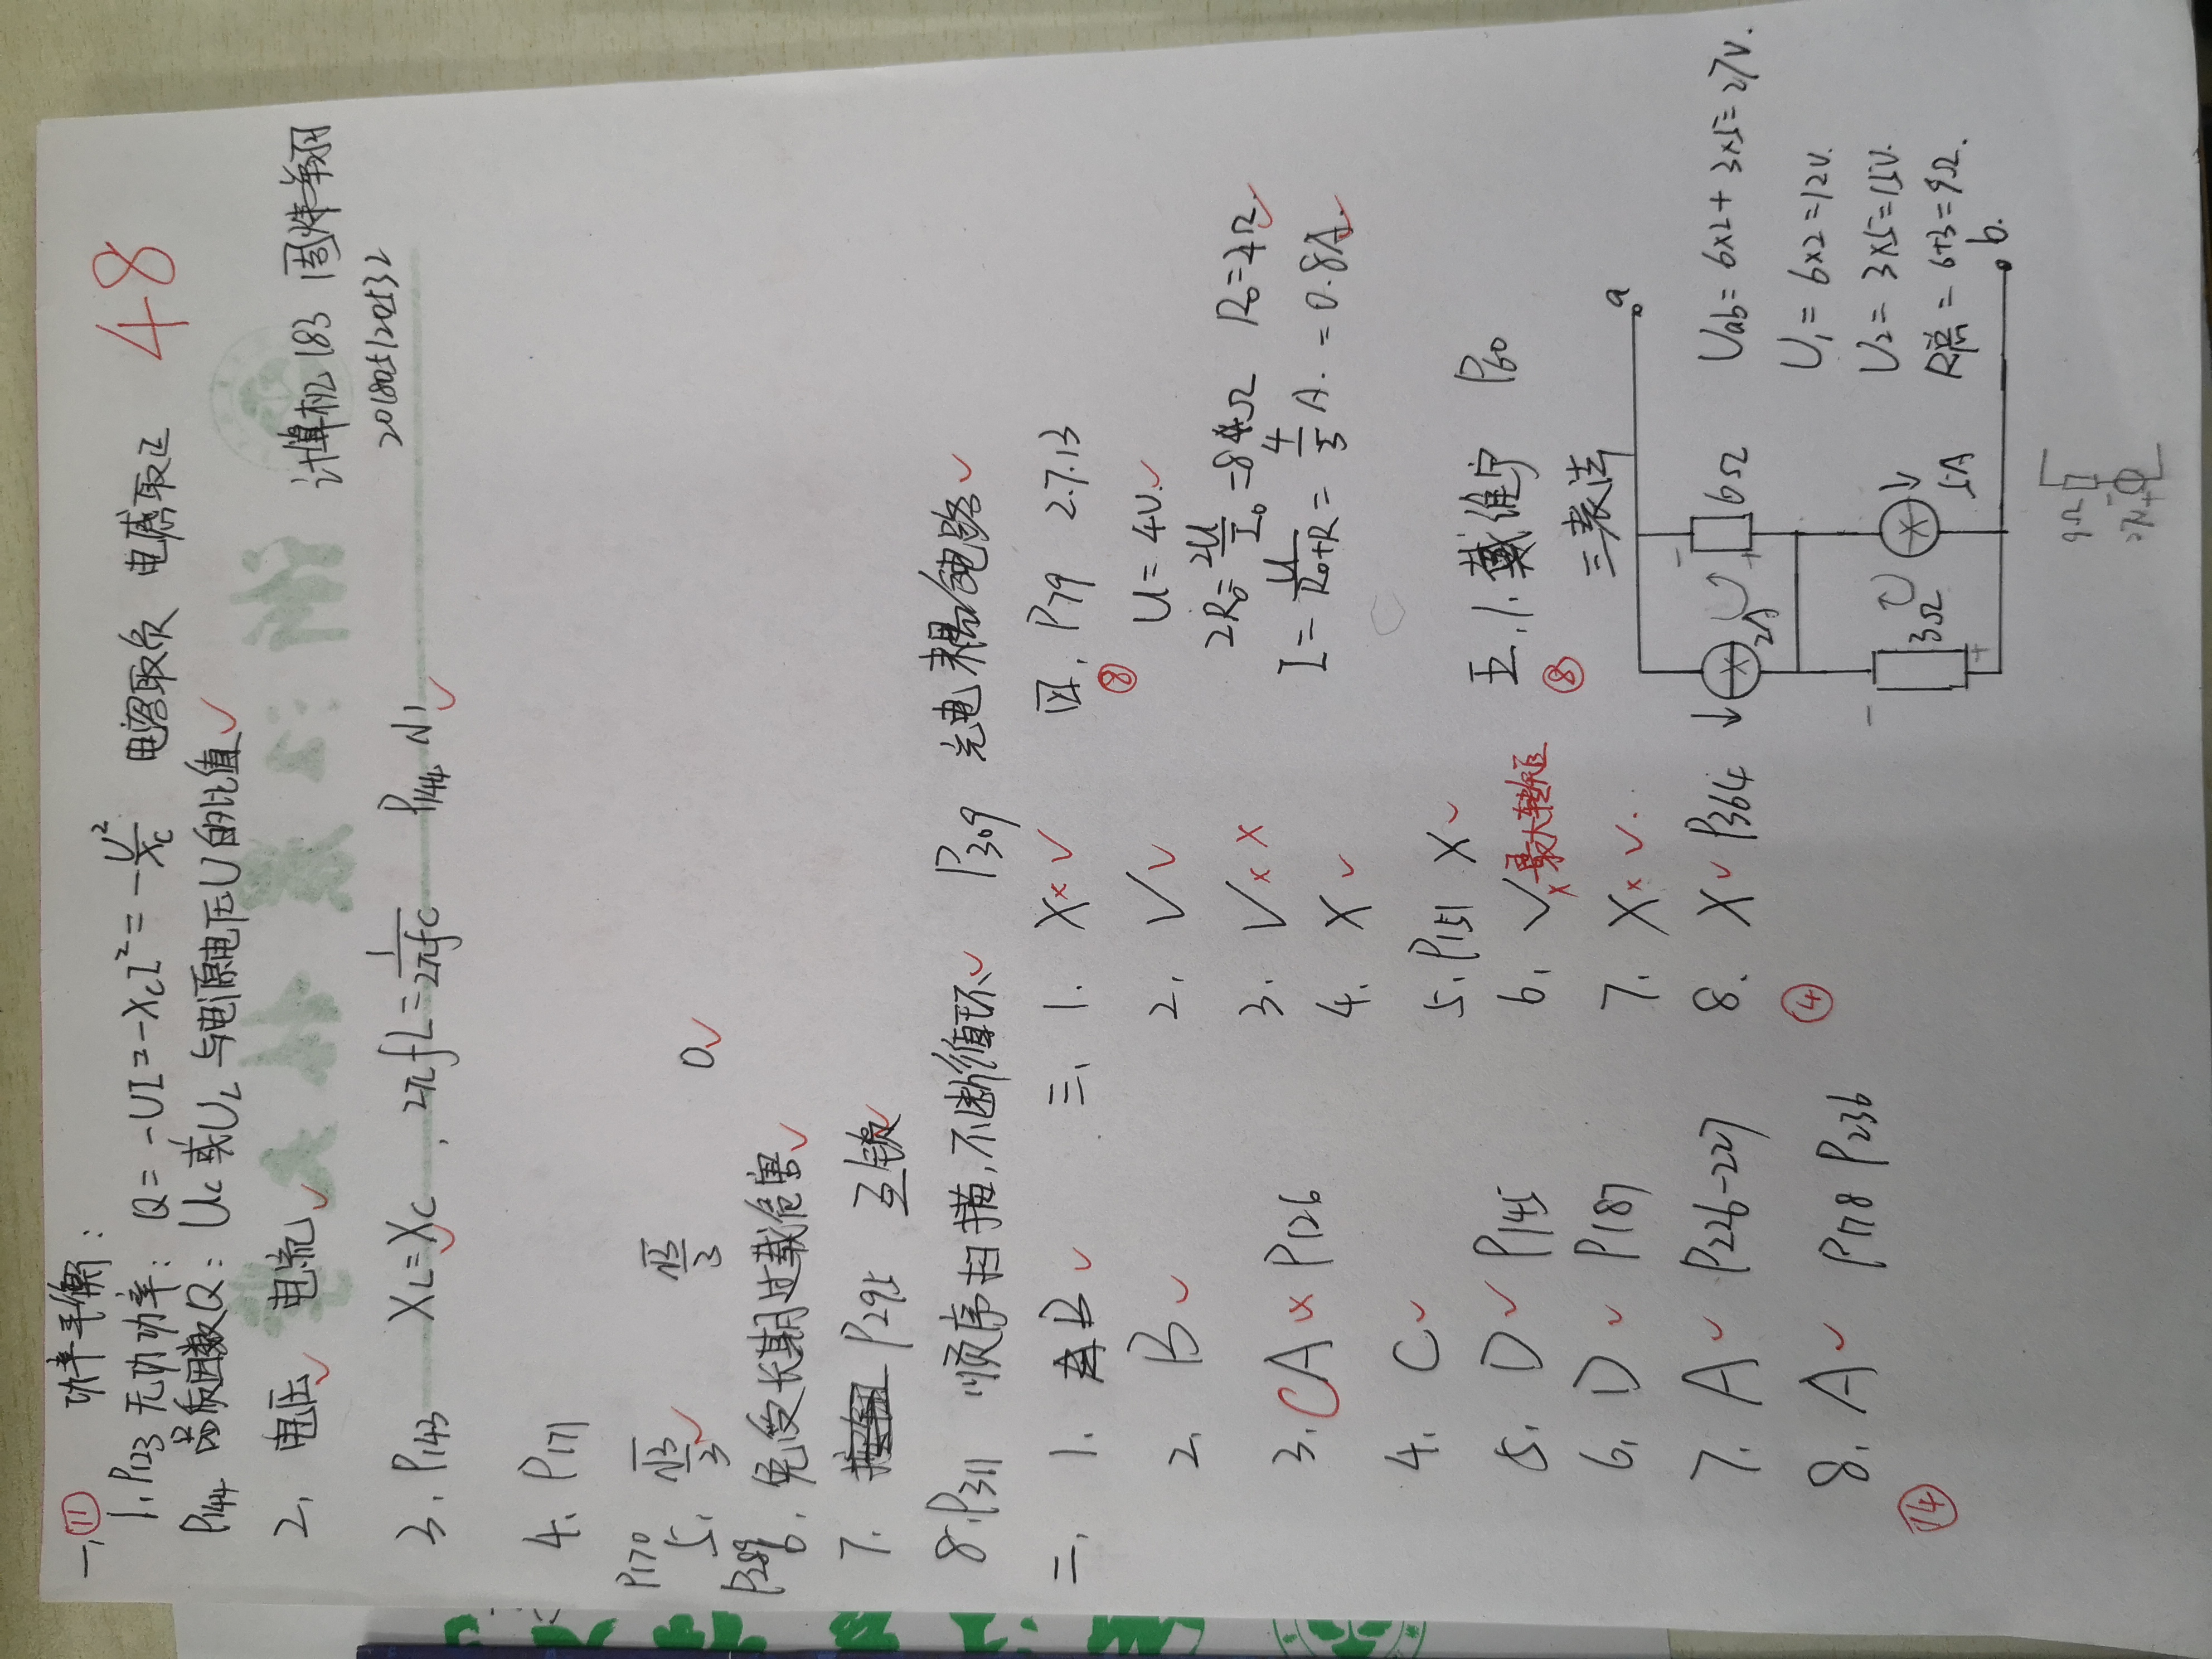 48
计算机183 周烨翔
201805120532
一、⑪
功率平衡:
1. P123 无功功率: Q = -UI = -XcI² = -U²/Xc 电容取负 电感取正
P144 品质因数Q: Uc或UL与电源电压U的比值 ✓
2. 电压 ✓ 电流 ✓
3. P143 XL=XC ✓, 2πfL = 1/2πfC P144 N1 ✓
4. P171
P170 5. √3/3 ✓ √3/3 0 ✓
P289 6. 免受长期过载危害 ✓
7. P295 互锁 ✓
8. P311 顺序扫描,不断循环 ✓ P309 光电耦合电路 ✓
二、
1. B ✓
2. B ✓
3. C A × P126
4. C ✓
5. D ✓ P145
6. D ✓ P187
7. A ✓ P226-227
8. A ✓ P178 P236
⑭
三、
1. X × √
2. √ ✓
3. √ × ×
4. X ✓
5. P151 X ✓
6. √ × 最大转矩
7. X × √.
8. X ✓ P364
④
四、P79 2.7.13
⑧
U=4V. ✓
2R0 = 2U/I0 = 8Ω R0=4Ω ✓
I = U/R0+R = 4/5 A. = 0.8A. ✓
五、1. 戴维宁 P60
⑧
三表法
a
2A
6Ω
3Ω
5A
b.
Uab = 6×2 + 3×5 = 27V.
U1 = 6×2 = 12V.
U2 = 3×5 = 15V.
R总 = 6+3 = 9Ω.
9Ω
27V